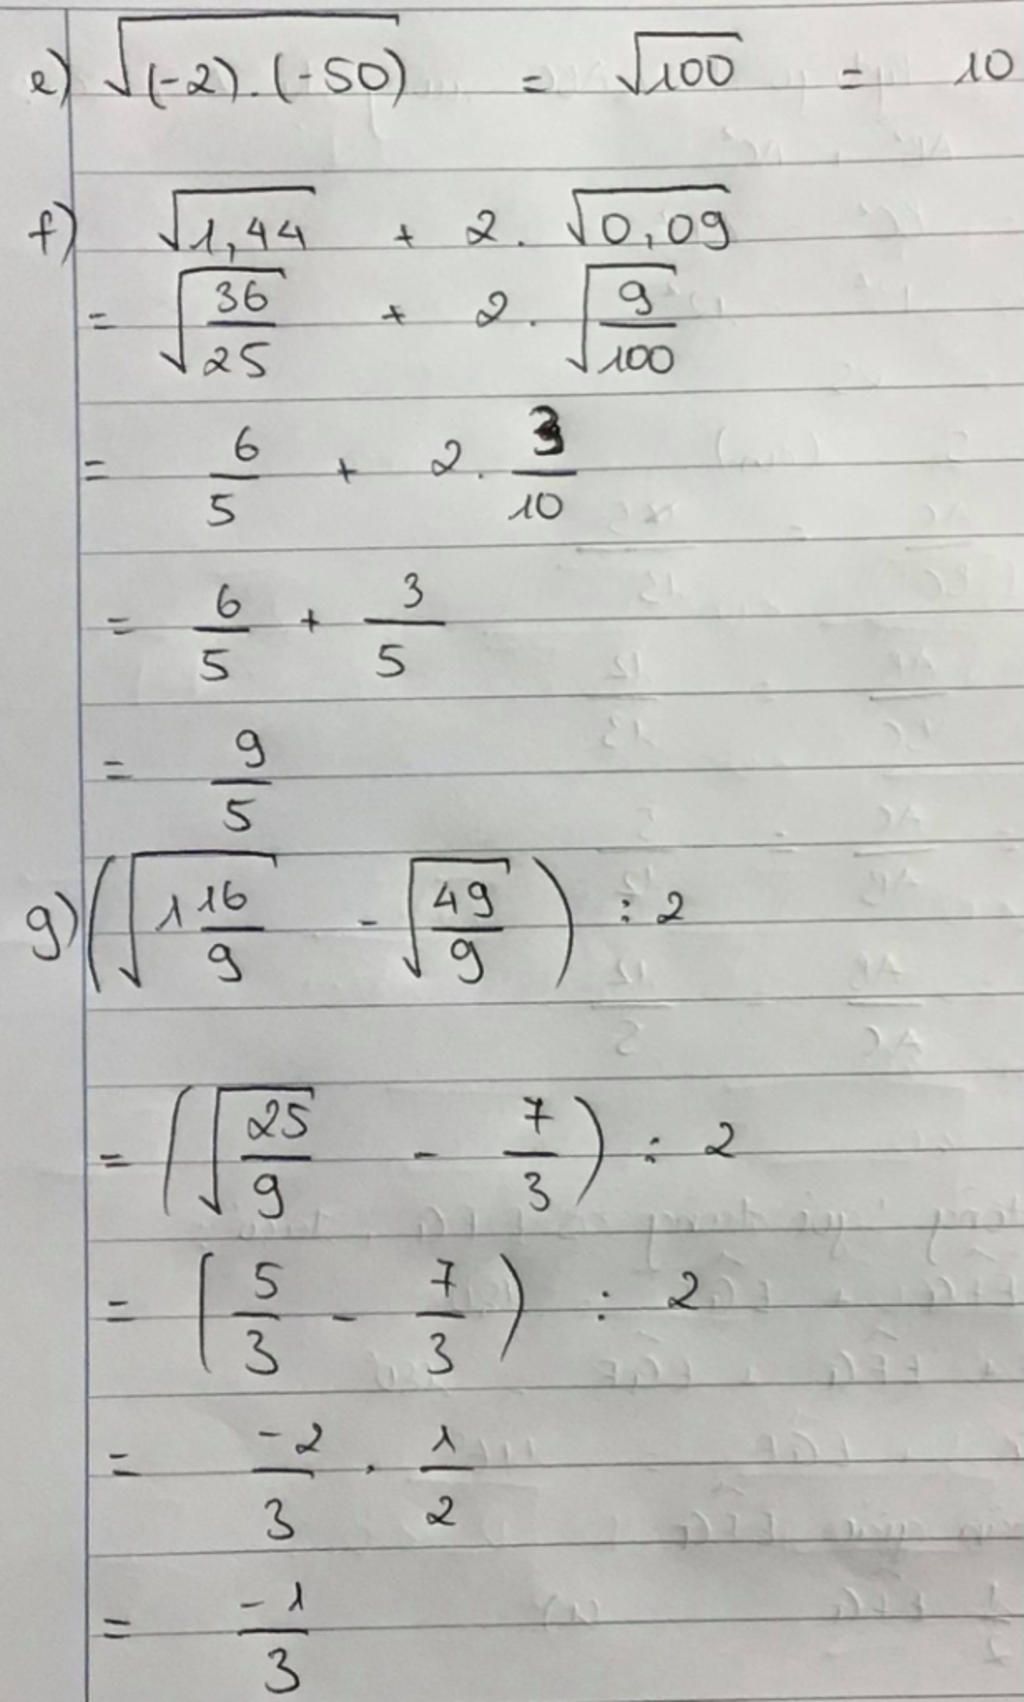 e) √((-2).(-50)) = √100 = 10
f) √1,44 + 2. √0,09
= √(36/25) + 2. √(9/100)
= 6/5 + 2. 3/10
= 6/5 + 3/5
= 9/5
g) (√(1 16/9) - √(49/9)) : 2
= (√(25/9) - 7/3) : 2
= (5/3 - 7/3) : 2
= -2/3 . 1/2
= -1/3